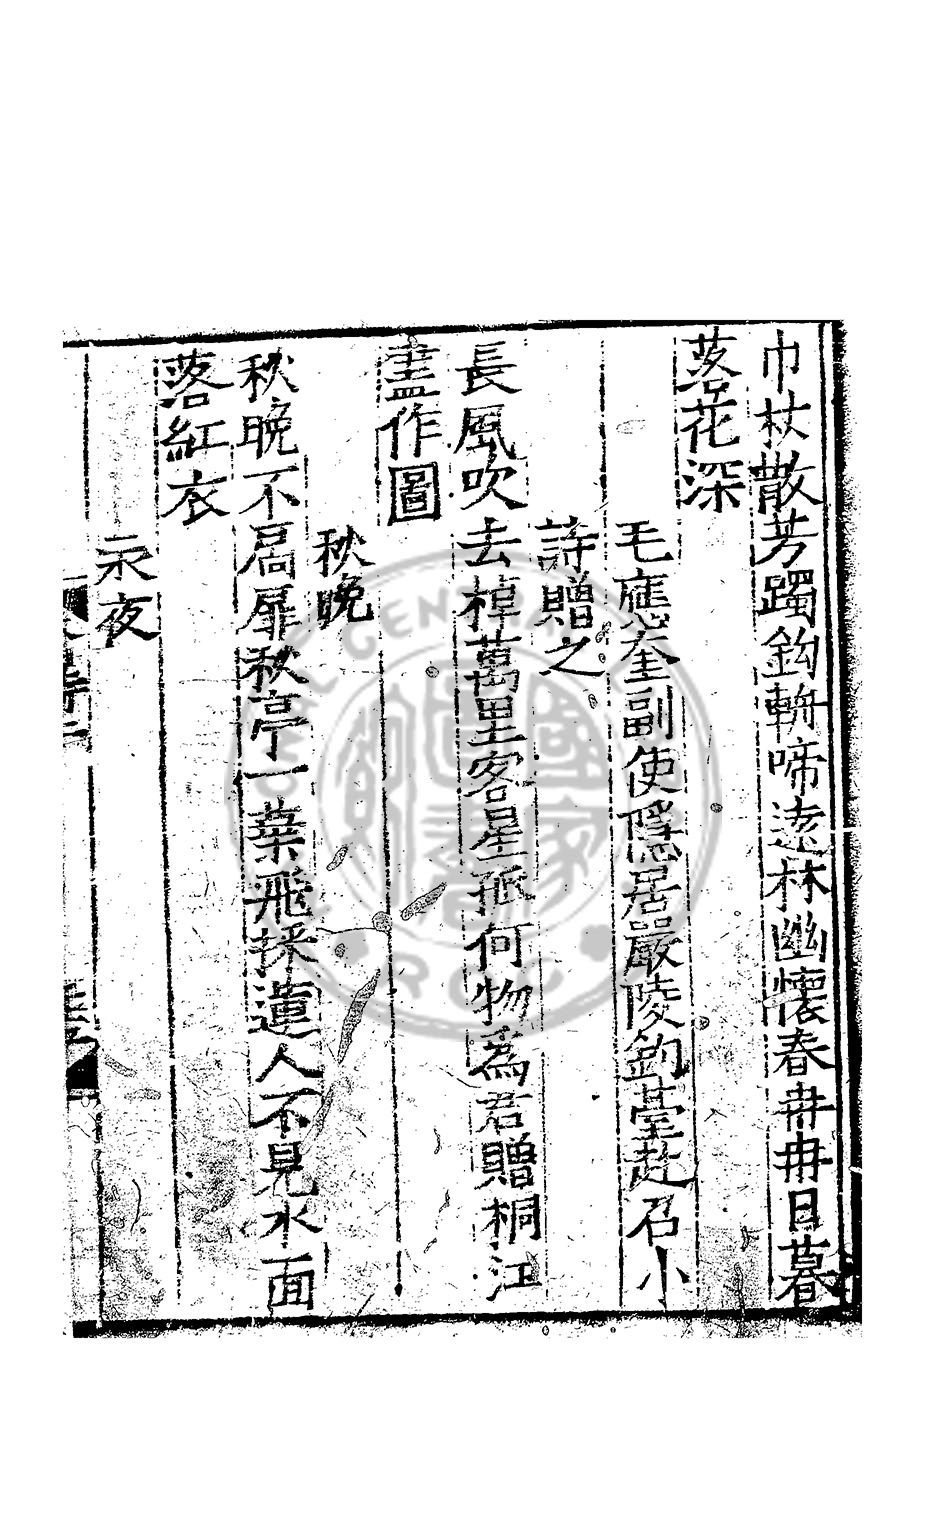 巾杖散芳躅鈎輈啼遠林幽懷春冉冉日暮
落花深
毛應奎副使隱居嚴陵釣臺赴召小
詩贈之
長風吹去棹萬里客星孤何物為君贈桐江
畫作圖
秋晚
秋晚不扃扉秋亭一葉飛採蓮人不見水面
落紅衣
永夜